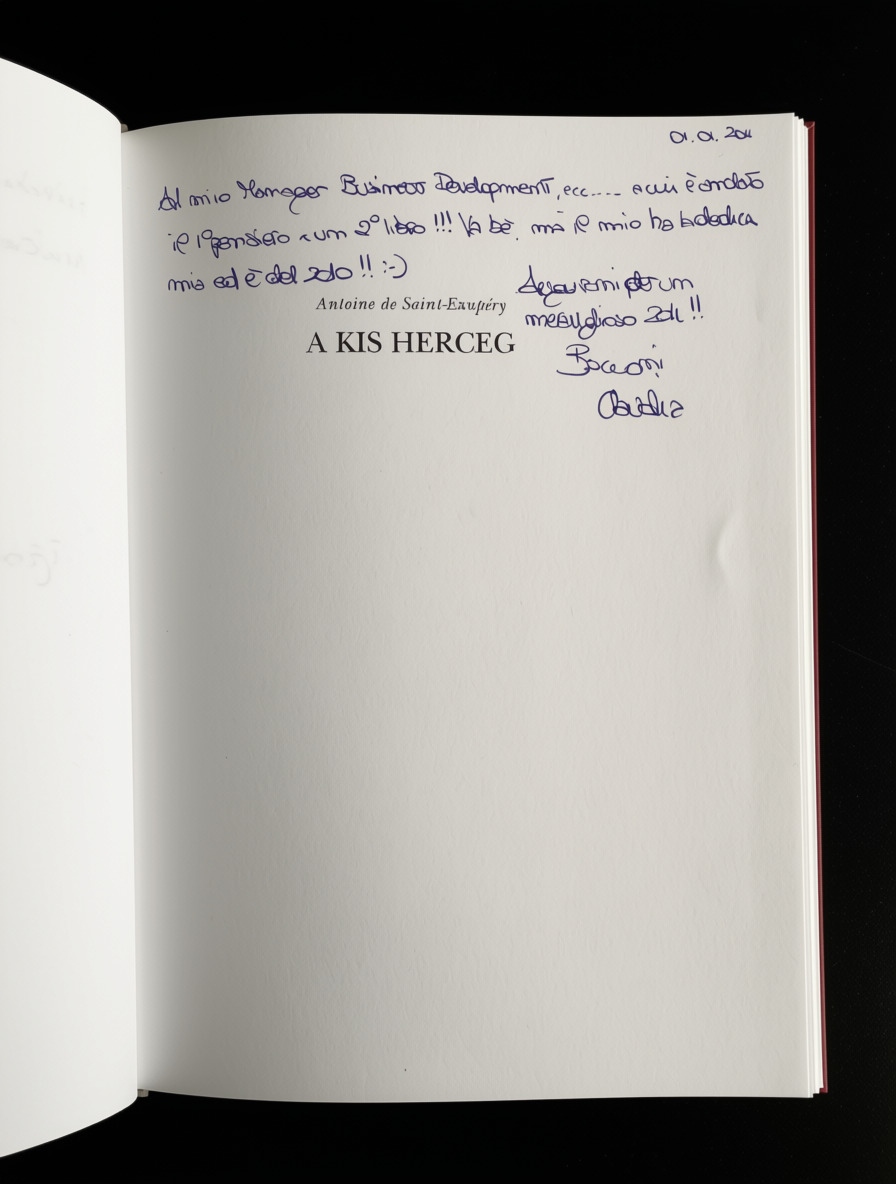 01.01.2011
Al mio Manager Business Development, ecc.... a cui è andato
il 1° pensiero x un 2° libro !!! Va bè, ma il mio ha la dedica
mia ed è del 2010 !! :-)
Antoine de Saint-Exupéry
A KIS HERCEG
Auguroni per un
meraviglioso 2011 !!
Bacioni